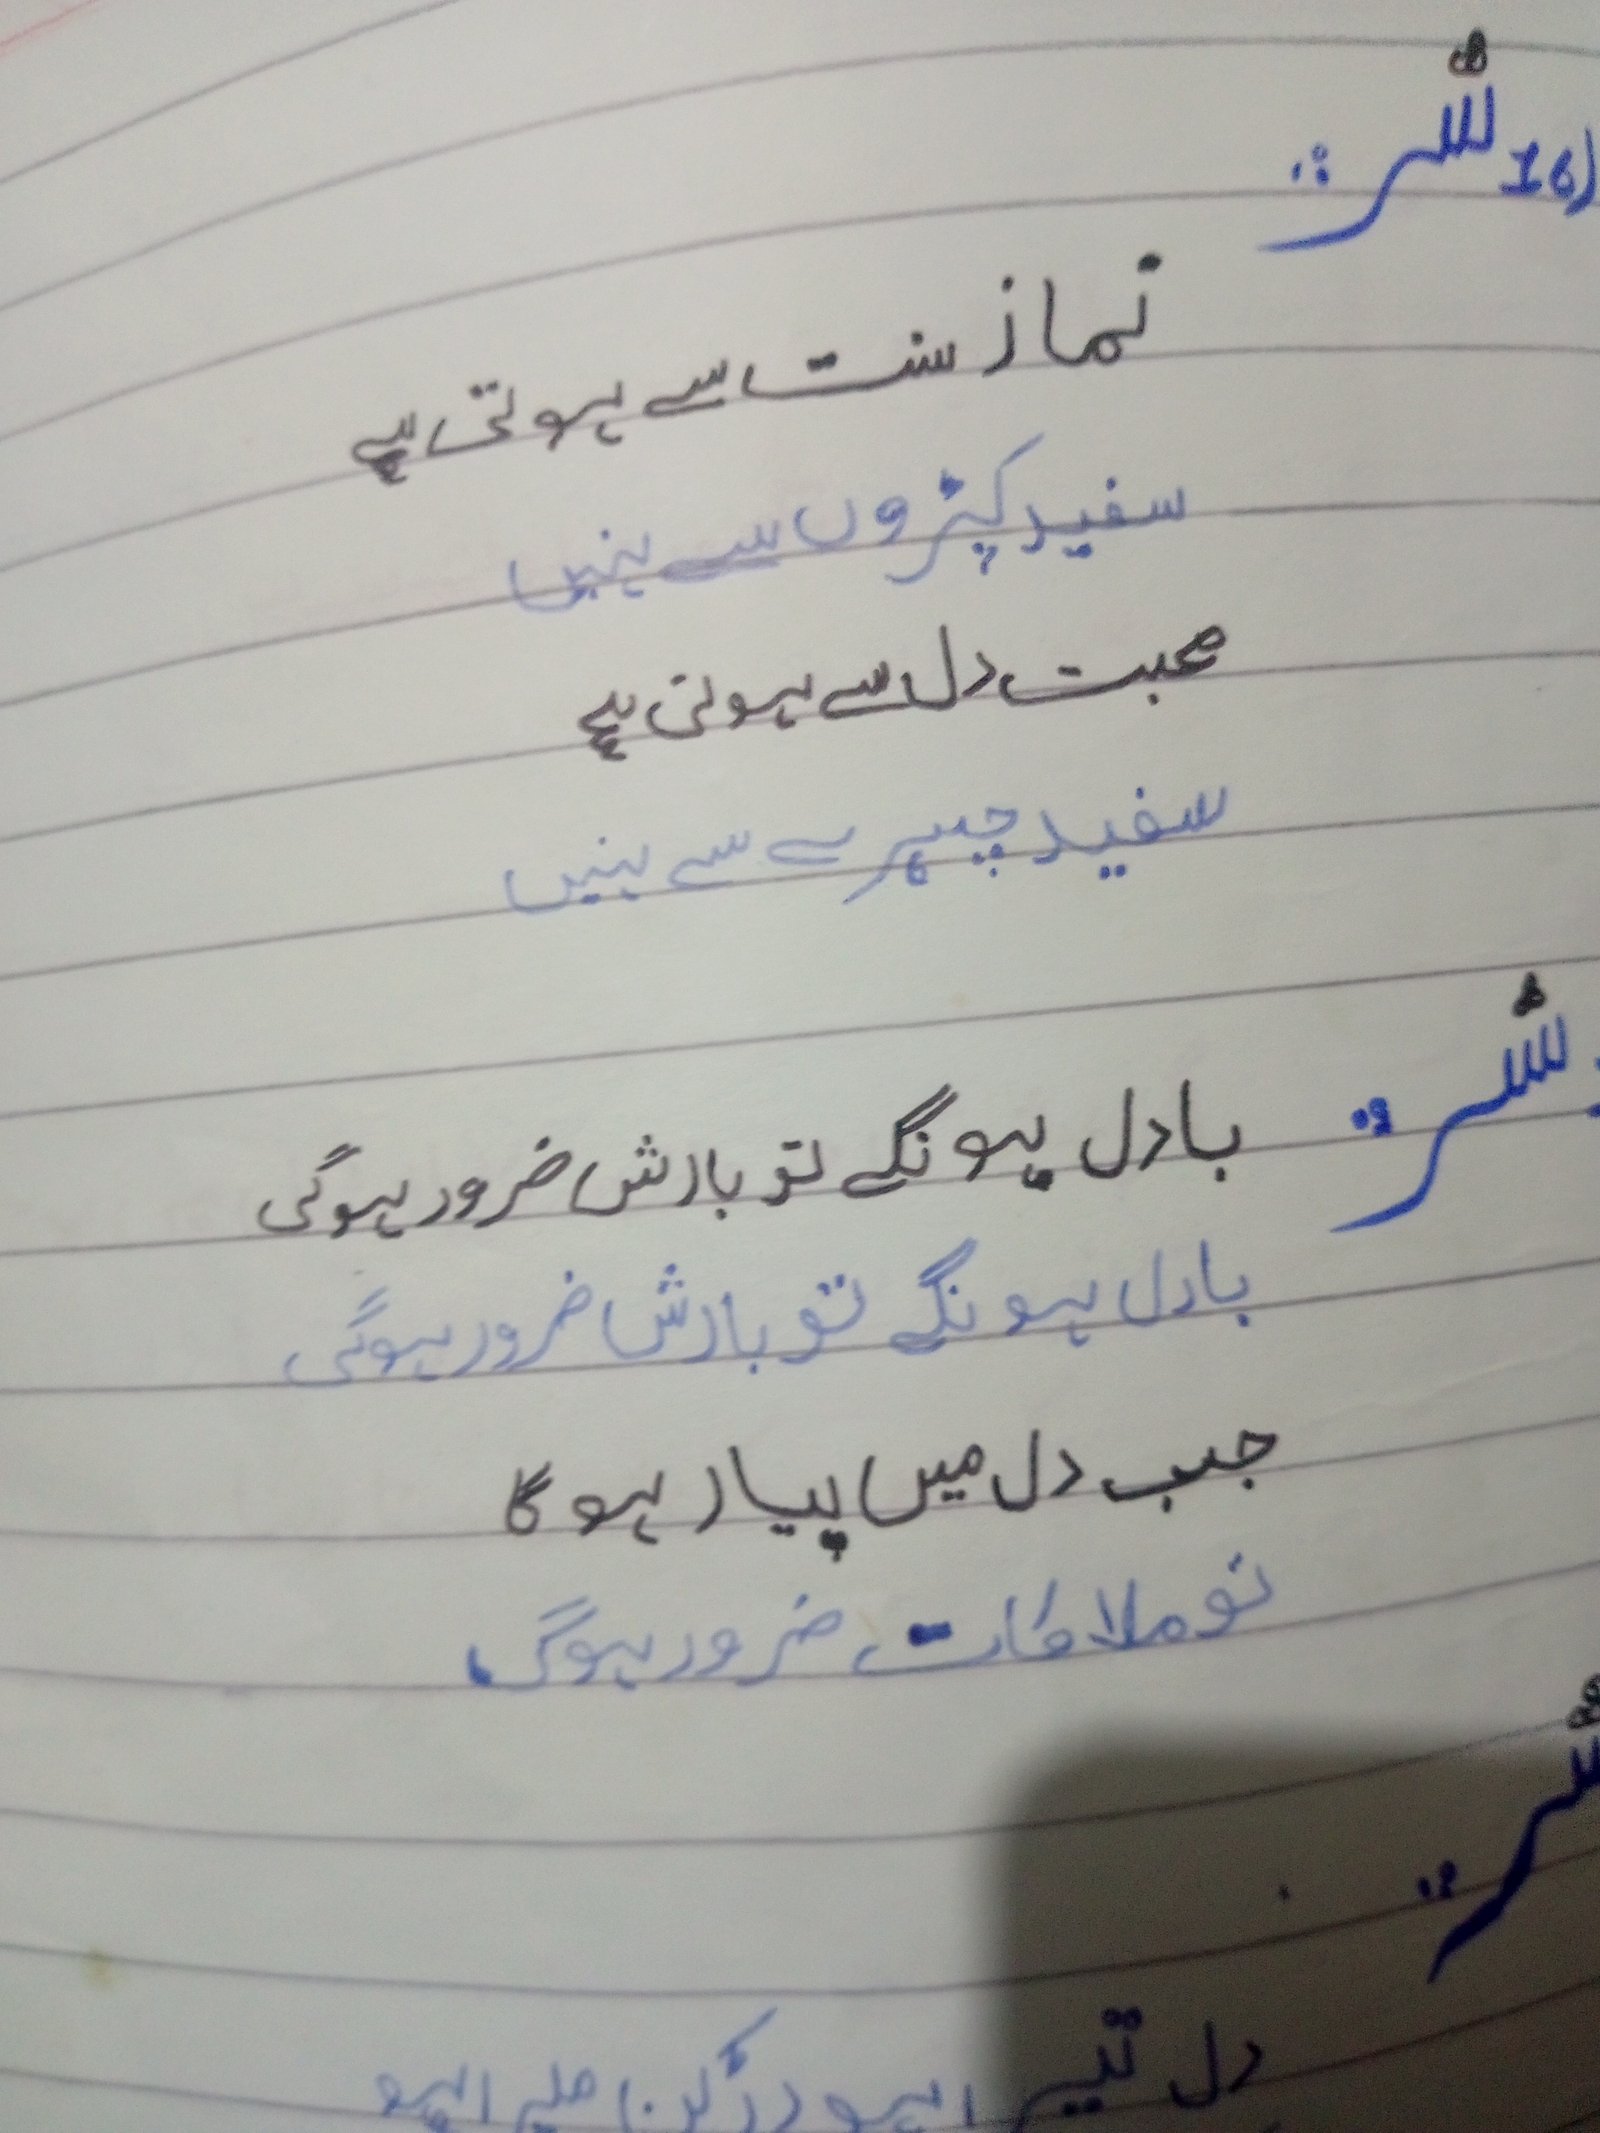 16) شعر:
نماز سنت سے ہوتی ہے
سفید کپڑوں سے نہیں
محبت دل سے ہوتی ہے
سفید چہرے سے نہیں
شعر:
بادل ہونگے تو بارش ضرور ہوگی
بادل ہونگے تو بارش ضرور ہوگی
جب دل میں پیار ہو گا
تو ملاقات ضرور ہوگی
شعر:
دل تیرا ہو